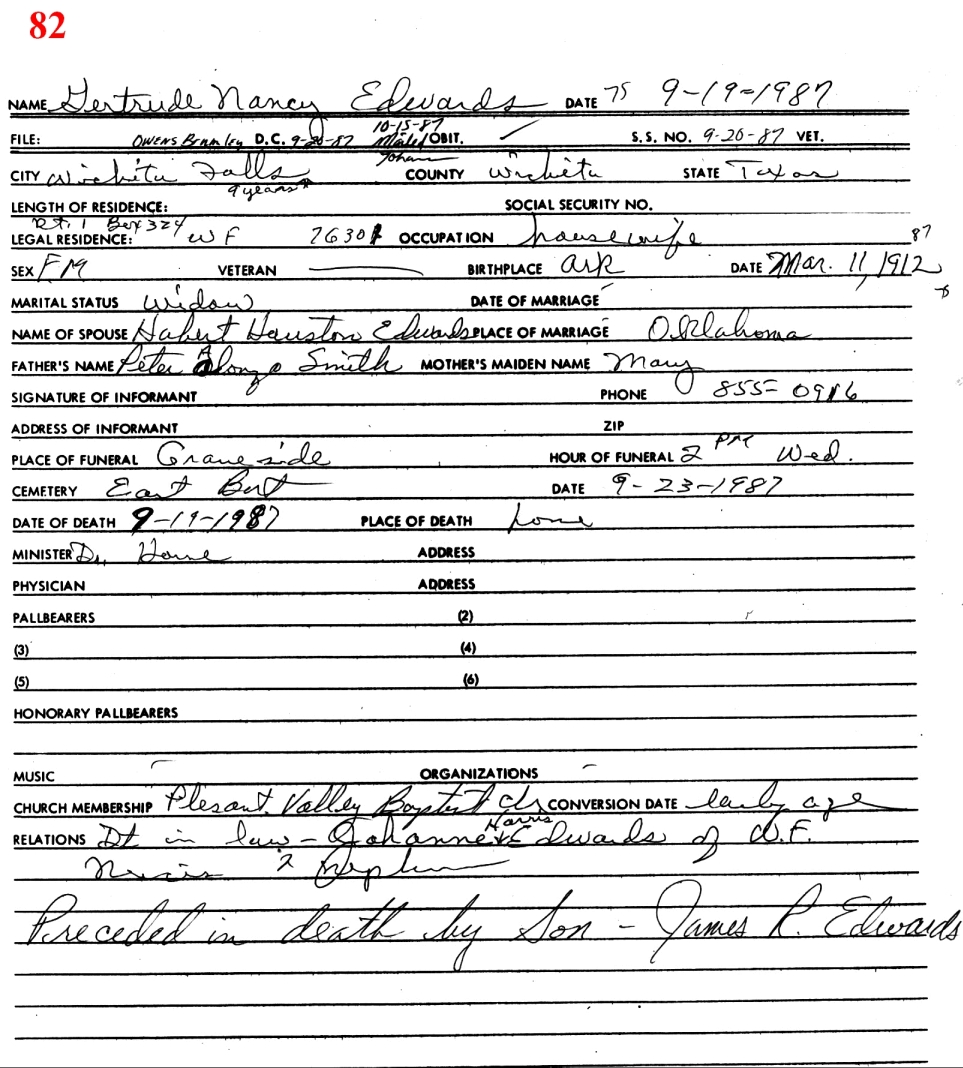 82
NAME Gertrude Nancy Edwards DATE 75 9-19-1987
10-15-87
FILE: OWENS BRUMLEY D.C. 9-20-87 Mailed OBIT. S.S. NO. 9-20-87 VET.
Johann
CITY Wichita Falls COUNTY Wichita STATE Texas
9 years
LENGTH OF RESIDENCE: SOCIAL SECURITY NO.
Rt. 1 Box 324
LEGAL RESIDENCE: WF 76301 OCCUPATION housewife 87
SEX FM VETERAN BIRTHPLACE Ark DATE Mar. 11, 1912
MARITAL STATUS Widow DATE OF MARRIAGE
NAME OF SPOUSE Hubert Houston Edwards PLACE OF MARRIAGE Oklahoma
FATHER'S NAME Peter Alonzo Smith MOTHER'S MAIDEN NAME Mary
SIGNATURE OF INFORMANT PHONE 855-0916
ADDRESS OF INFORMANT ZIP
PLACE OF FUNERAL Graveside HOUR OF FUNERAL 2 PM Wed.
CEMETERY East Burt DATE 9-23-1987
DATE OF DEATH 9-19-1987 PLACE OF DEATH home
MINISTER Dr. ADDRESS
PHYSICIAN ADDRESS
PALLBEARERS (2)
(3) (4)
(5) (6)
HONORARY PALLBEARERS
MUSIC ORGANIZATIONS
CHURCH MEMBERSHIP Plesant Valley Baptist Ch CONVERSION DATE early age
Harris
RELATIONS Dt in law - Johanne Edwards of W.F.
Preceded in death by Son - James R. Edwards